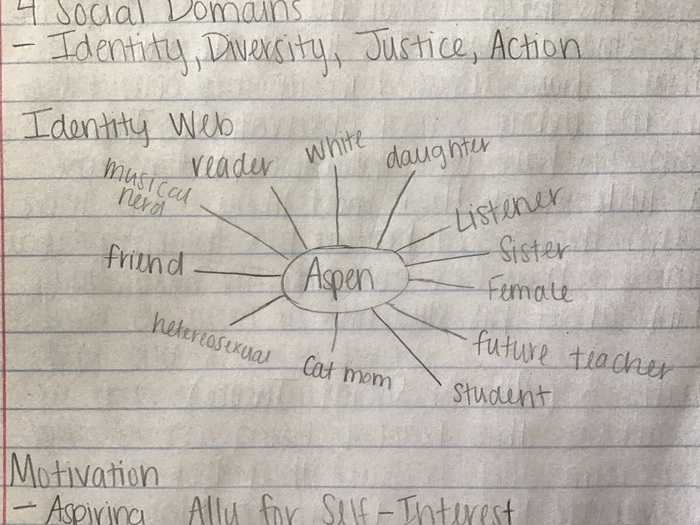 4 Social Domains
- Identity, Diversity, Justice, Action
Identity Web
white
daughter
reader
musical
nerd
Listener
Sister
friend
Aspen
Female
hetereosexual
future teacher
Cat mom
student
Motivation
- Aspiring Ally for Self-Interest